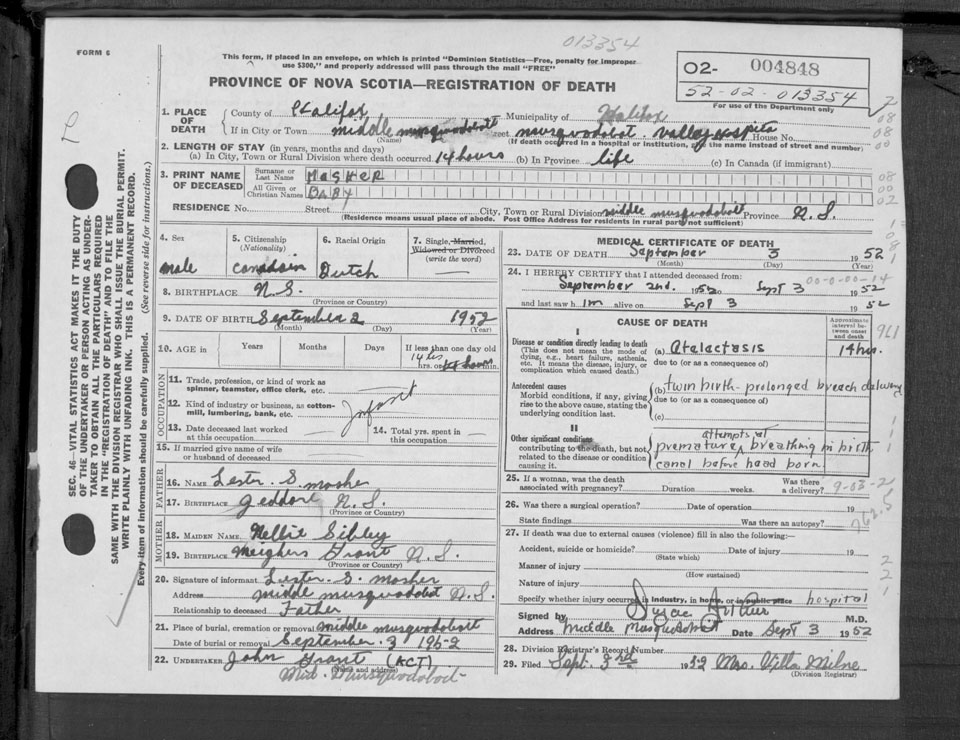 013354
FORM 6
This form, if placed in an envelope, on which is printed "Dominion Statistics—Free, penalty for improper
use $300," and properly addressed will pass through the mail "FREE"
PROVINCE OF NOVA SCOTIA—REGISTRATION OF DEATH
O2- 004848
52-02-013354
For use of the Department only
SEC. 46—VITAL STATISTICS ACT MAKES IT THE DUTY
OF THE UNDERTAKER OR PERSON ACTING AS UNDER-
TAKER TO OBTAIN ALL THE PARTICULARS REQUIRED
IN THE "REGISTRATION OF DEATH" AND TO FILE THE
SAME WITH THE DIVISION REGISTRAR WHO SHALL ISSUE THE BURIAL PERMIT.
WRITE PLAINLY WITH UNFADING INK. THIS IS A PERMANENT RECORD.
Every item of information should be carefully supplied. (See reverse side for instructions.)
1. PLACE OF DEATH
County of Halifax Municipality of Halifax
If in City or Town middle musquodobott Street musquodobot valley hospital House No.
(Name) (If death occurred in a hospital or institution, give the name instead of street and number)
2. LENGTH OF STAY (in years, months and days)
(a) In City, Town or Rural Division where death occurred 14 hours (b) In Province life (c) In Canada (if immigrant)
3. PRINT NAME OF DECEASED
Surname or Last Name MOSHER
All Given or Christian Names BABY
RESIDENCE No. Street City, Town or Rural Division middle musquodobott Province N.S.
(Residence means usual place of abode. Post Office Address for residents in rural part not sufficient)
4. Sex
male
5. Citizenship
(Nationality)
canadain
6. Racial Origin
Dutch
7. Single, Married,
Widowed or Divorced
(write the word)
8. BIRTHPLACE N.S.
(Province or Country)
9. DATE OF BIRTH September 2 1952
(Month) (Day) (Year)
10. AGE in Years Months Days If less than one day old
14 hrs. or min.
OCCUPATION
11. Trade, profession, or kind of work as
spinner, teamster, office clerk, etc.
12. Kind of industry or business, as cotton-
mill, lumbering, bank, etc.
Infant
13. Date deceased last worked
at this occupation
14. Total yrs. spent in
this occupation
15. If married give name of wife
or husband of deceased
FATHER
16. NAME Lester S. mosher
17. BIRTHPLACE Geddore N.S.
(Province or Country)
MOTHER
18. MAIDEN NAME Nellie Sibley
19. BIRTHPLACE Meighers Grant N.S.
(Province or Country)
20. Signature of informant Lester. S. mosher
Address middle musquodobot N.S.
Relationship to deceased Father
21. Place of burial, cremation or removal middle musquodobott
Date of burial or removal September. 3 1952
22. UNDERTAKER John Grant (ACT)
(Name and address)
Mid. Musquodoboit
MEDICAL CERTIFICATE OF DEATH
23. DATE OF DEATH September 3 1952
(Month) (Day) (Year)
24. I HEREBY CERTIFY that I attended deceased from:
0-0-00-14
September 2nd. 1952 to Sept 3 1952
and last saw him alive on Sept 3 1952
CAUSE OF DEATH
Approximate interval between onset and death
I
Disease or condition directly leading to death
(This does not mean the mode of
dying, e.g., heart failure, asthenia,
etc. It means the disease, injury, or
complication which caused death.)
(a) Atelectasis 14 hrs.
due to (or as a consequence of)
Antecedent causes
Morbid conditions, if any, giving
rise to the above cause, stating the
underlying condition last.
(b) twin birth - prolonged breach delivery
due to (or as a consequence of)
(c)
II
Other significant conditions
contributing to the death, but not
related to the disease or condition
causing it.
premature attempts at breathing in birth
canal before head born.
25. If a woman, was the death
associated with pregnancy? Duration weeks. Was there
a delivery?
26. Was there a surgical operation? Date of operation 19
State findings Was there an autopsy?
762.5
27. If death was due to external causes (violence) fill in also the following:
Accident, suicide or homicide? Date of injury 19
(State which)
Manner of injury
(How sustained)
Nature of injury
Specify whether injury occurred in industry, in home, or in public place hospital
Signed by M.D.
Address Middle Musquodoboit Date Sept 3 1952
28. Division Registrar's Record Number
29. Filed Sept. 3rd 1952 Mrs. Villa Milne
(Division Registrar)